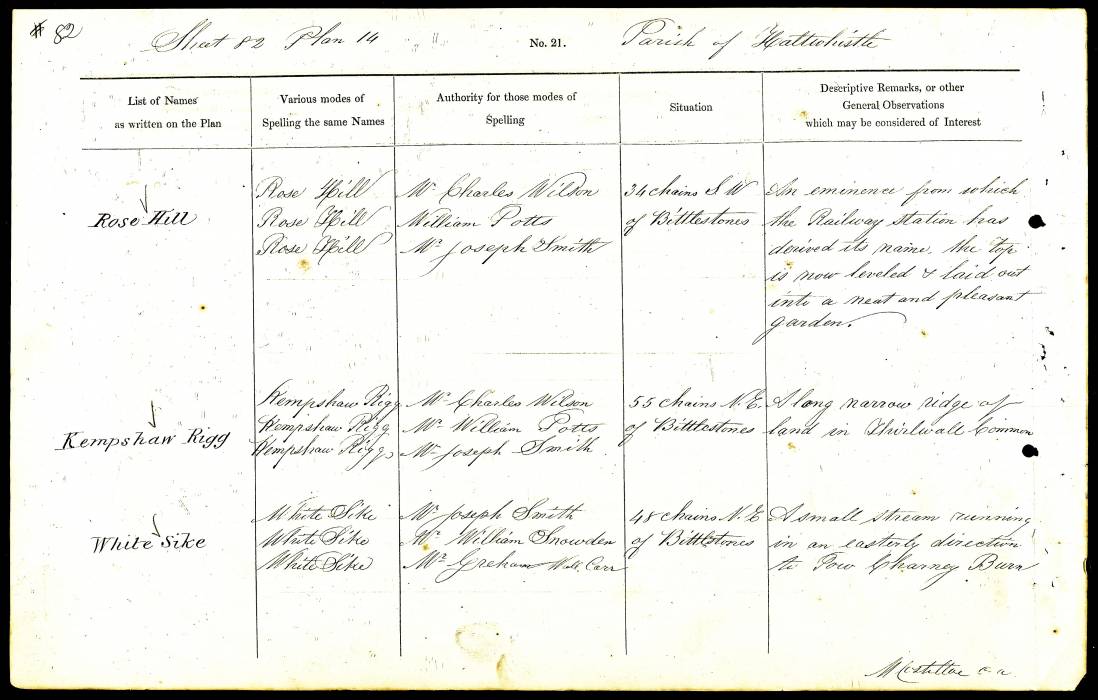 # 82
Sheet 82 Plan 14 " No. 21. Parish of Haltwhistle
List of Names
as written on the Plan
Various modes of
Spelling the same Names
Authority for those modes of
Spelling
Situation
Descriptive Remarks, or other
General Observations
which may be considered of Interest
Rose Hill
Rose Hill
Rose Hill
Rose Hill
Mr Charles Wilson
William Potts
Mr Joseph Smith
34 chains S W
of Bittlestones
An eminence from which
the Railway station has
derived its name. the top
is now leveled & laid out
into a neat and pleasant
garden.
Kempshaw Rigg
Kempshaw Rigg
Kempshaw Rigg
Kempshaw Rigg
Mr Charles Wilson
Mr William Potts
Mr Joseph Smith
55 chains N.E.
of Bittlestones
A long narrow ridge of
land in Thirlwall Common
White Sike
White Sike
White Sike
White Sike
Mr Joseph Smith
Mr William Snowden
Mr Greham Wall Carr
48 chains N.E
of Bittlestones
A small stream running
in an easterly direction
to Pow Charney Burn